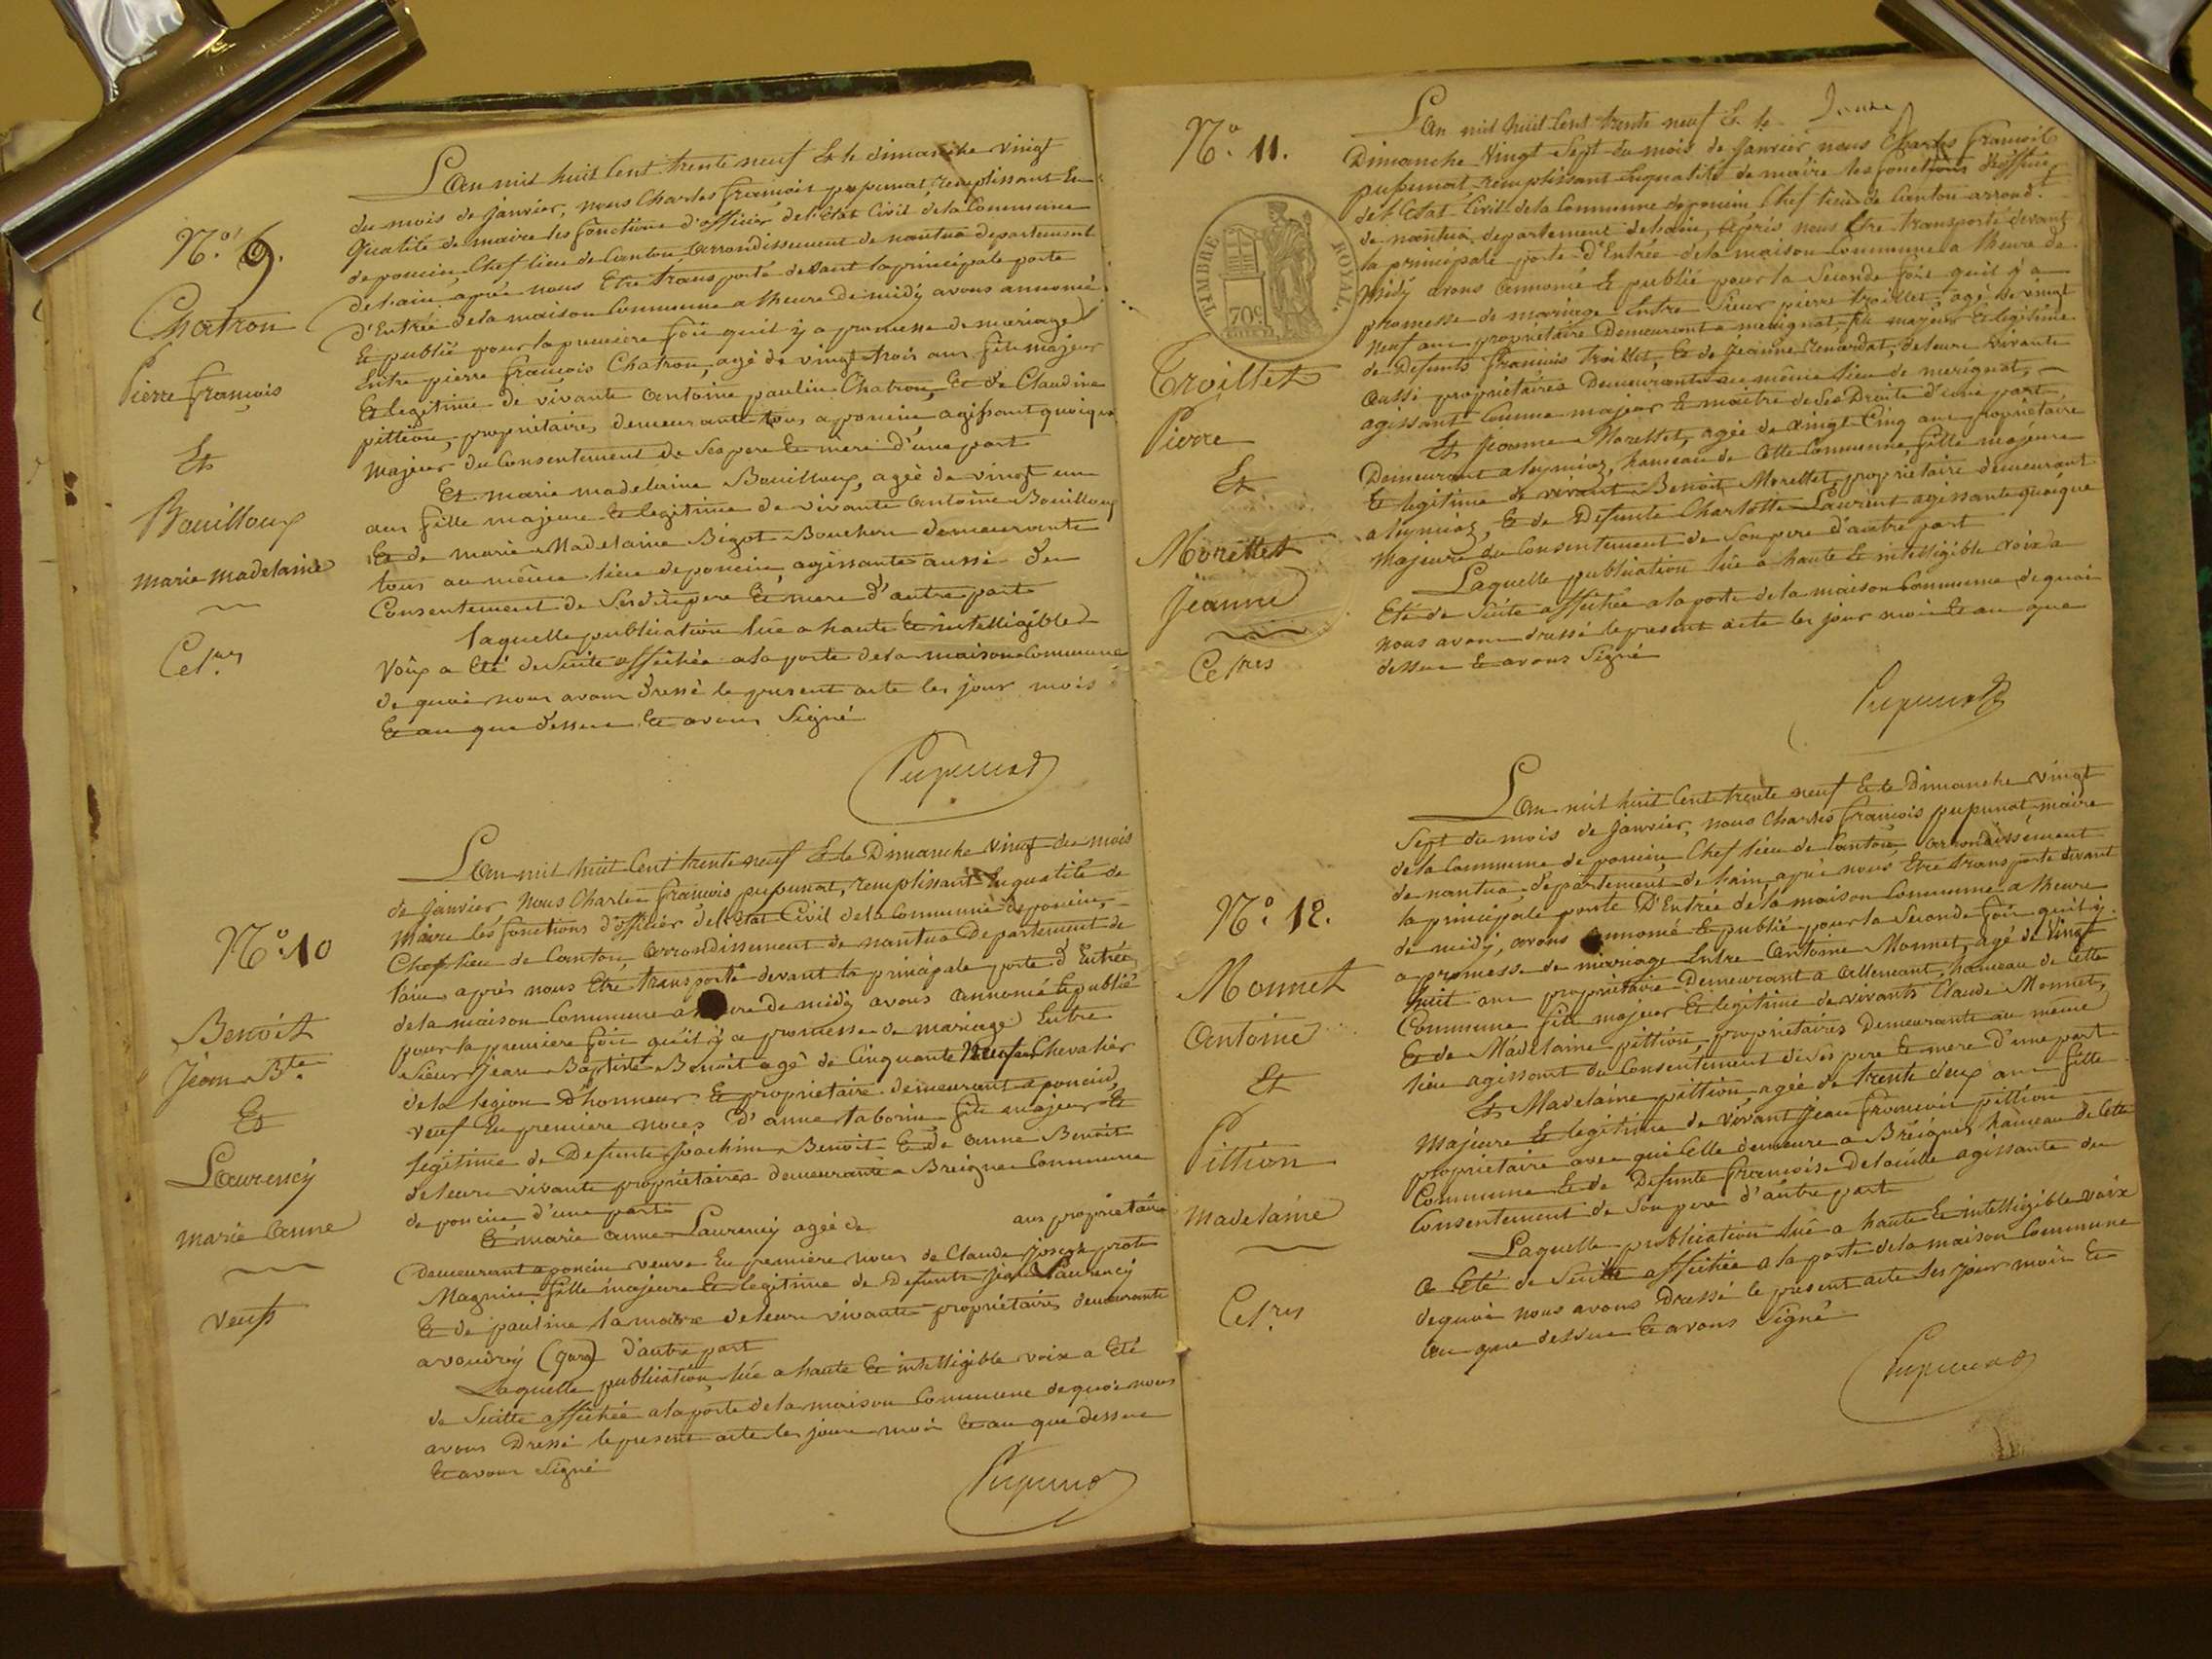 N.° 9.
Chatron
Pierre françois
Et
Bouilloux
marie madelaine
Ce.res
L'an mil huit Cent trente neuf Et le dimanche vingt
du mois de janvier, nous Charles françois pupunat, remplissant En
qualité de maire les fonctions d'officier de l'état Civil de la Commune
de poncin, Chef lieu de Canton, arrondissement de nantua departement
de l'ain, après nous Etre transporté devant la principale porte
d'Entrée de la maison Commune a l'heure de midy avons annoncé
Et publié pour la premiere fois qu'il y a promesse de mariage
Entre pierre françois Chatron, agé de vingt trois ans fils majeur
Et legitime de vivants antoine paulin Chatron, Et de Claudine
pittion, propriétaires demeurants tous a poncin, agissant quoique
majeur du Consentement de Ses pere Et mere d'une part
Et marie madelaine Bouilloux, agée de vingt un
ans fille majeure Et legitime de vivants antoine Bouilloux
Et de marie Madelaine Bigot Bouchon demeurants
tous au même lieu de poncin, agissante aussi du
Consentement de Ses dits pere Et mere d'autre part
laquelle publication lüe a haute Et intelligible
voix a Eté de Suite affichée a la porte de la maison Commune
de quoi nous avons dressé le present acte les jour mois
Et an que dessus Et avons Signé
Pupunat
N.° 10
Benoit
Jean B.te
Et
Laurency
marie anne
veufs
L'an mil huit Cent trente neuf Et le Dimanche vingt du mois
de janvier Nous Charles françois pupunat, remplissant En qualité de
Maire les fonctions d'officier de l'état Civil de la Commune de poncin,
Chef lieu de Canton, arrondissement de nantua Departement de
l'ain, après nous Etre transporté devant la principale porte d'Entrée
de la maison Commune a de midy avons annoncé Et publié
pour la premiere fois qu'il y a promesse de mariage Entre
Sieur Jean Baptiste Benoit agé de Cinquante Neuf ans Chevalier
de la légion d'honneur Et propriétaire demeurant a poncin,
veuf En premiere noces d'anne taborin fils majeur Et
legitime de Defunts joachim Benoit Et de anne Benoit
de leurs vivants propriétaires demeurants a Breigne Commune
de poncin d'une part
Et marie anne Laurency agée de ans propriétaire
demeurant a poncin veuve En premiere noces de Claude joseph prote
Magnin fille majeure Et legitime de Defunts jean Laurency
Et de pauline lamarre de leurs vivants propriétaires demeurants
a voudrey (jura) d'autre part
Laquelle publication lüe a haute Et intelligible voix a Eté
de Suitte affichée a la porte de la maison Commune de quoi nous
avons Dressé le present acte les jour mois Et an que dessus
Et avons Signé
Pupunat
N.° 11.
TIMBRE ROYAL.
70c
Troillet
Pierre
Et
Morellet
Jeanne
Ce.res
L'an mil huit Cent trente neuf Et le
Dimanche vingt Sept du mois de janvier nous Charles françois
pupunat remplissant En qualité de maire les fonctions d'officier
de l'Etat Civil de la Commune de poncin Chef lieu de Canton arrond.t
de nantua, departement de l'ain, après nous Etre transporté devant
la principale porte d'Entrée de la maison Commune a l'heure de
midy avons annoncé Et publié pour la Seconde fois qu'il y a
promesse de mariage Entre Sieur pierre troillet, agé de vingt
neuf ans propriétaire Demeurant a merignat, fils majeur Et legitime
de Defunts françois troillet, Et de jeanne renardat, de leurs vivants
aussi propriétaires Demeurants au même lieu de merignat,
agissant Comme majeur Et maitre de Ses Droits d'une part
Et jeanne Morellet, agée de vingt Cinq ans propriétaire
Demeurant a leymiaz, hameau de Cette Commune, fille majeure
Et legitime de vivant Benoit Morellet, propriétaire demeurant
a leymiaz, Et de Defunte Charlotte Laurent agissante quoique
majeure du Consentement de Son pere d'autre part
Laquelle publication lüe a haute Et intelligible voix a
Eté de Suite affichée a la porte de la maison Commune de quoi
nous avons dressé le present acte les jour mois Et an que
dessus Et avons Signé
Pupunat
N.° 12.
Monnet
antoine
Et
Pittion
Madelaine
Ce.res
L'an mil huit Cent trente neuf Et le Dimanche vingt
Sept du mois de janvier, nous Charles françois pupunat maire
de la Commune de poncin Chef lieu de Canton arrondissement
de nantua departement de l'ain après nous Etre transporté devant
la principale porte D'Entrée de la maison Commune a l'heure
de midy, avons annoncé Et publié pour la Seconde fois qu'il y
a promesse de mariage Entre antoine Monnet, agé de vingt
huit ans propriétaire Demeurant a allemant, hameau de Cette
Commune fils majeur Et legitime de vivants Claude Monnet,
Et de Madelaine pittion propriétaires Demeurants au même
lieu agissant du Consentement de Ses pere Et mere d'une part
Et Madelaine pittion, agée de trente deux ans fille
Majeure Et legitime de vivant jean françois pittion
propriétaire avec qui Elle demeure a Breignes hameau de Cette
Commune Et de Defunte françoise agissante du
Consentement de Son pere d'autre part
Laquelle publication lüe a haute Et intelligible voix
a Eté de Suitte affichée a la porte de la maison Commune
de quoi nous avons Dressé le present acte les jour mois Et
an que dessus Et avons Signé
Pupunat